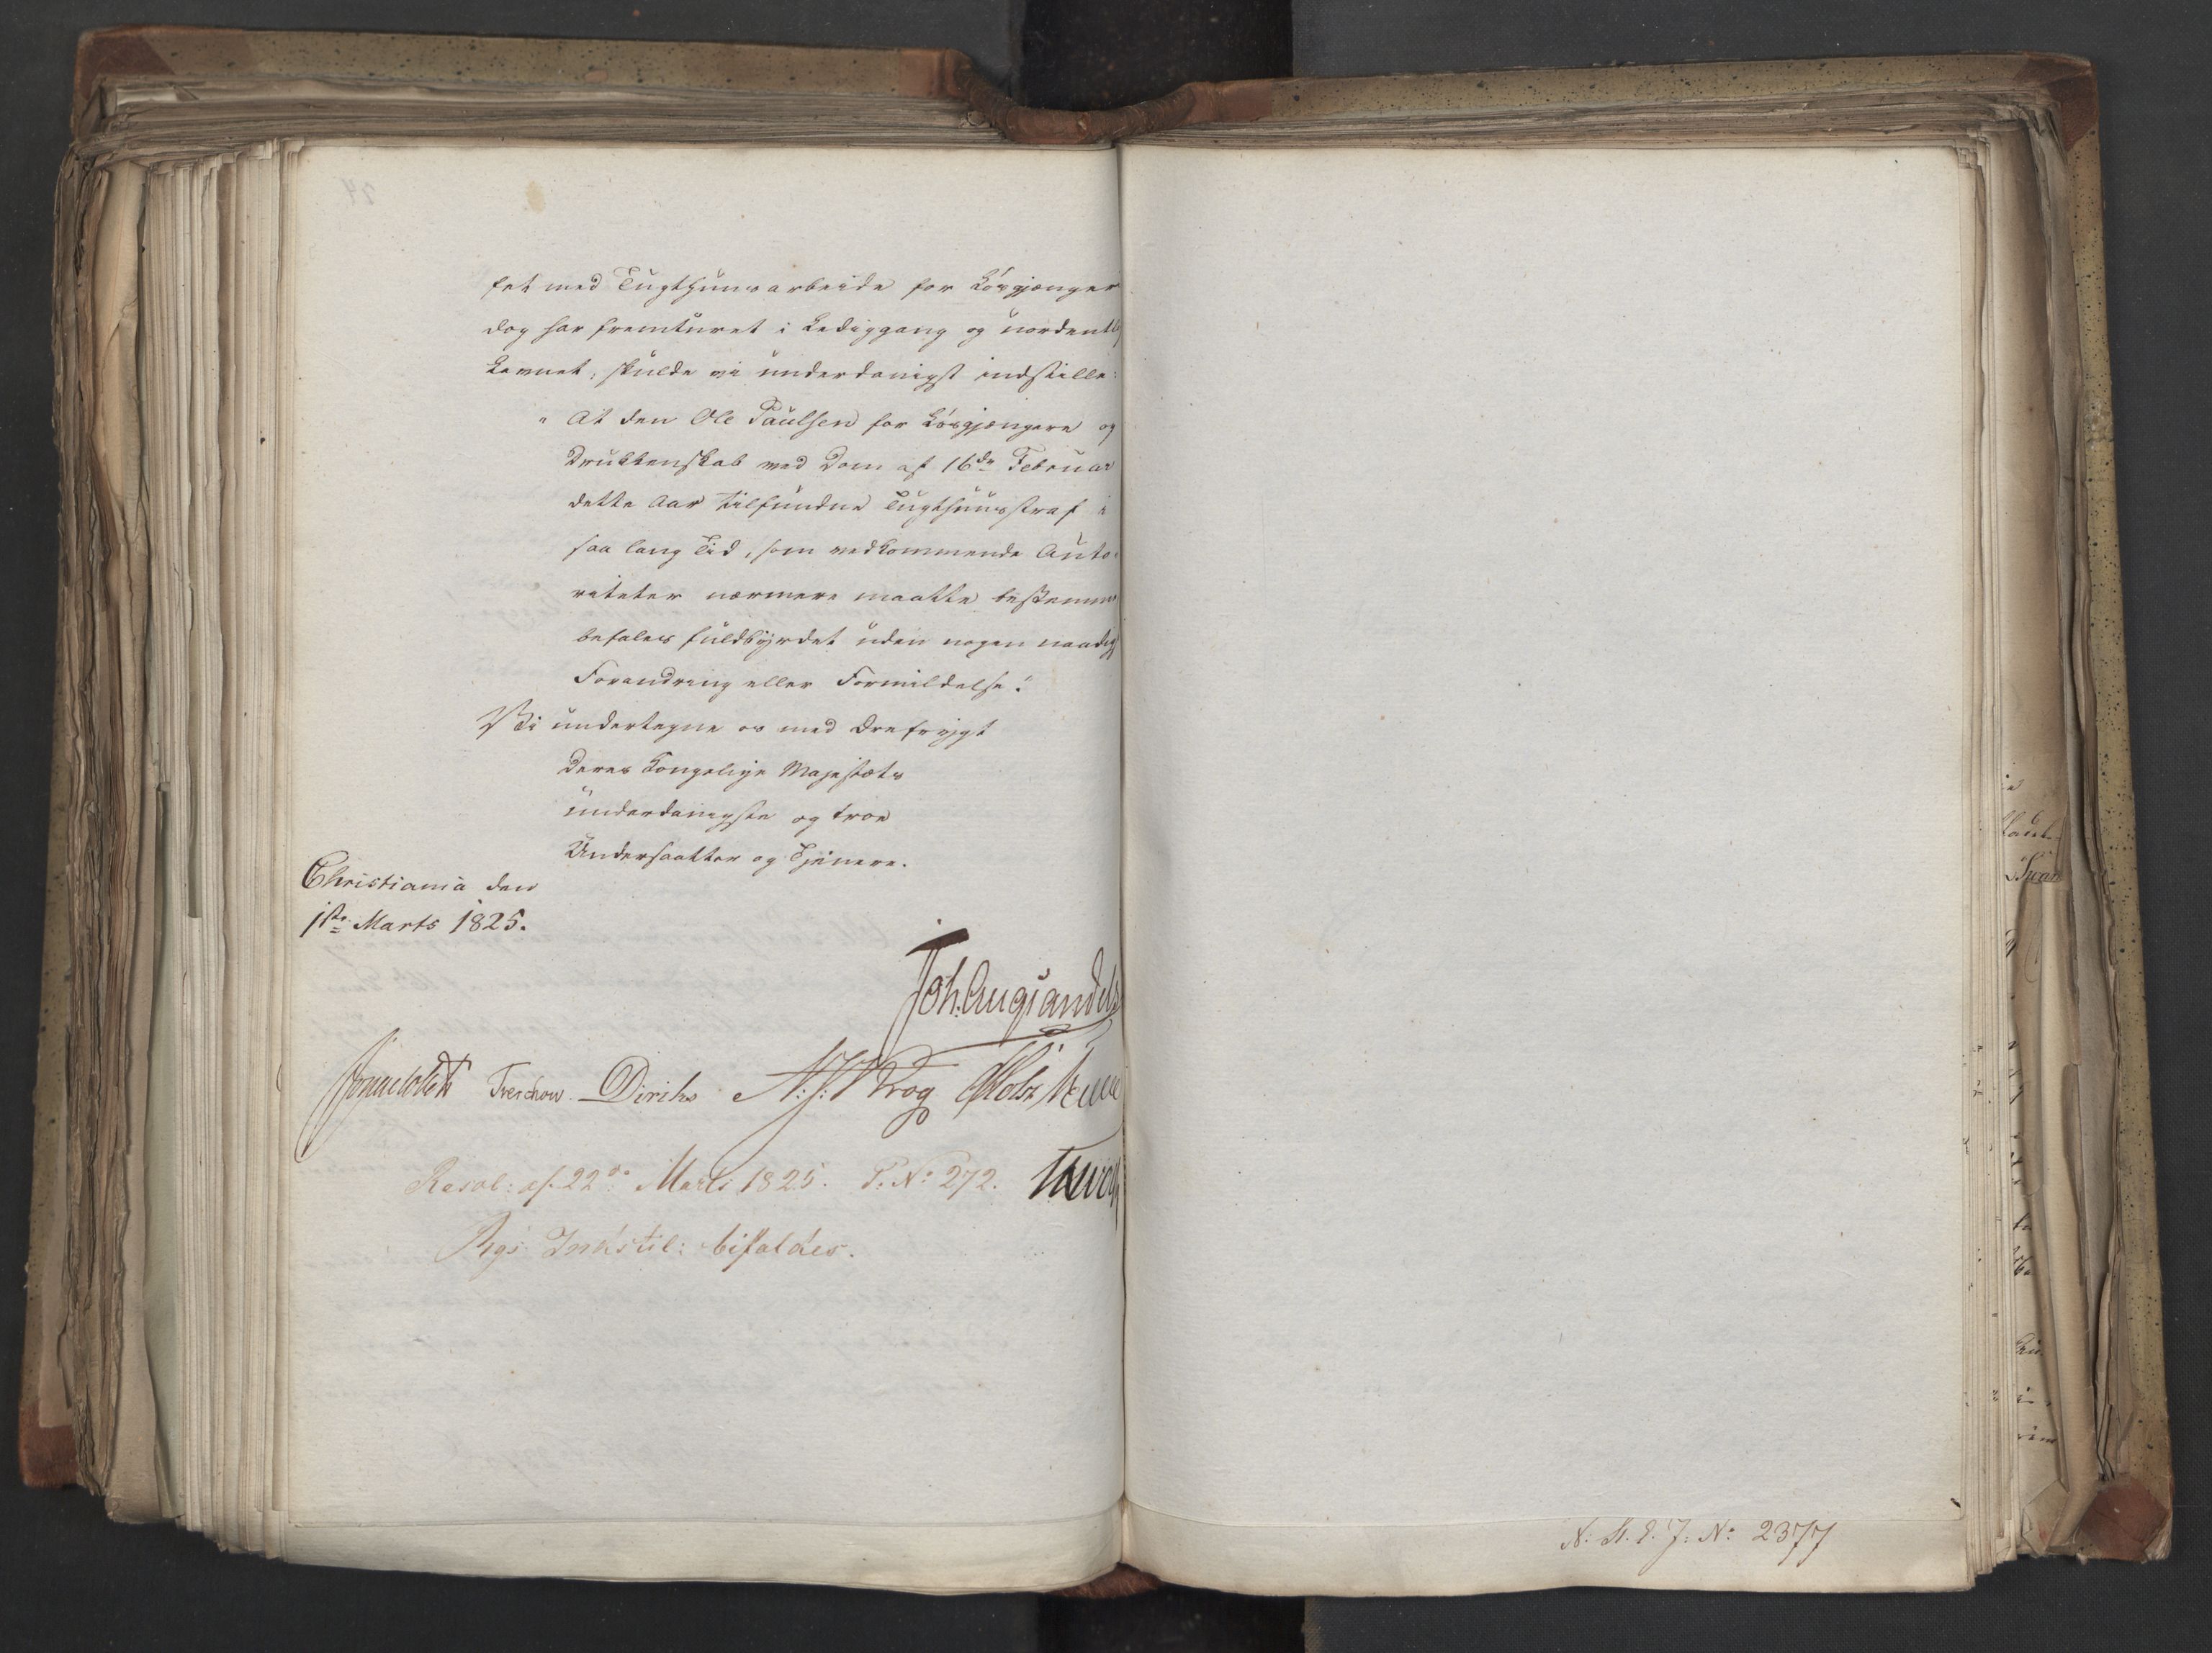 fet med Tugthuusarbeide for Løsgjænger
dog har fremturet i Lediggang og uordentlig
Levnet, skulde vi underdanigst indstille:
" At den Ole Paulsen for Løsgjængerie og
Drukkenskab ved Dom af 16de Februar
dette Aar tilfundne Tugthuusstraf i
saa lang Tid, som vedkommende Auto-
riteter nærmere maatte bestemme
befales fuldbyrdet uden nogen naadig
Forandring eller Formildelse."
Vi undertegne os med Ærefrygt
Deres Kongelige Majestæts
underdanigste og troe
Undersaatter og Tjenere.
Christiania den
1ste Marts 1825.
Joh. Aug. Sandels
Sommerhielm Treschow Diriks N. J. Krog Holst
Resol: af 22de Marts 1825. P. No 272.
Rgs Indstil: bifaldes.
N. St. E. J: No 2377